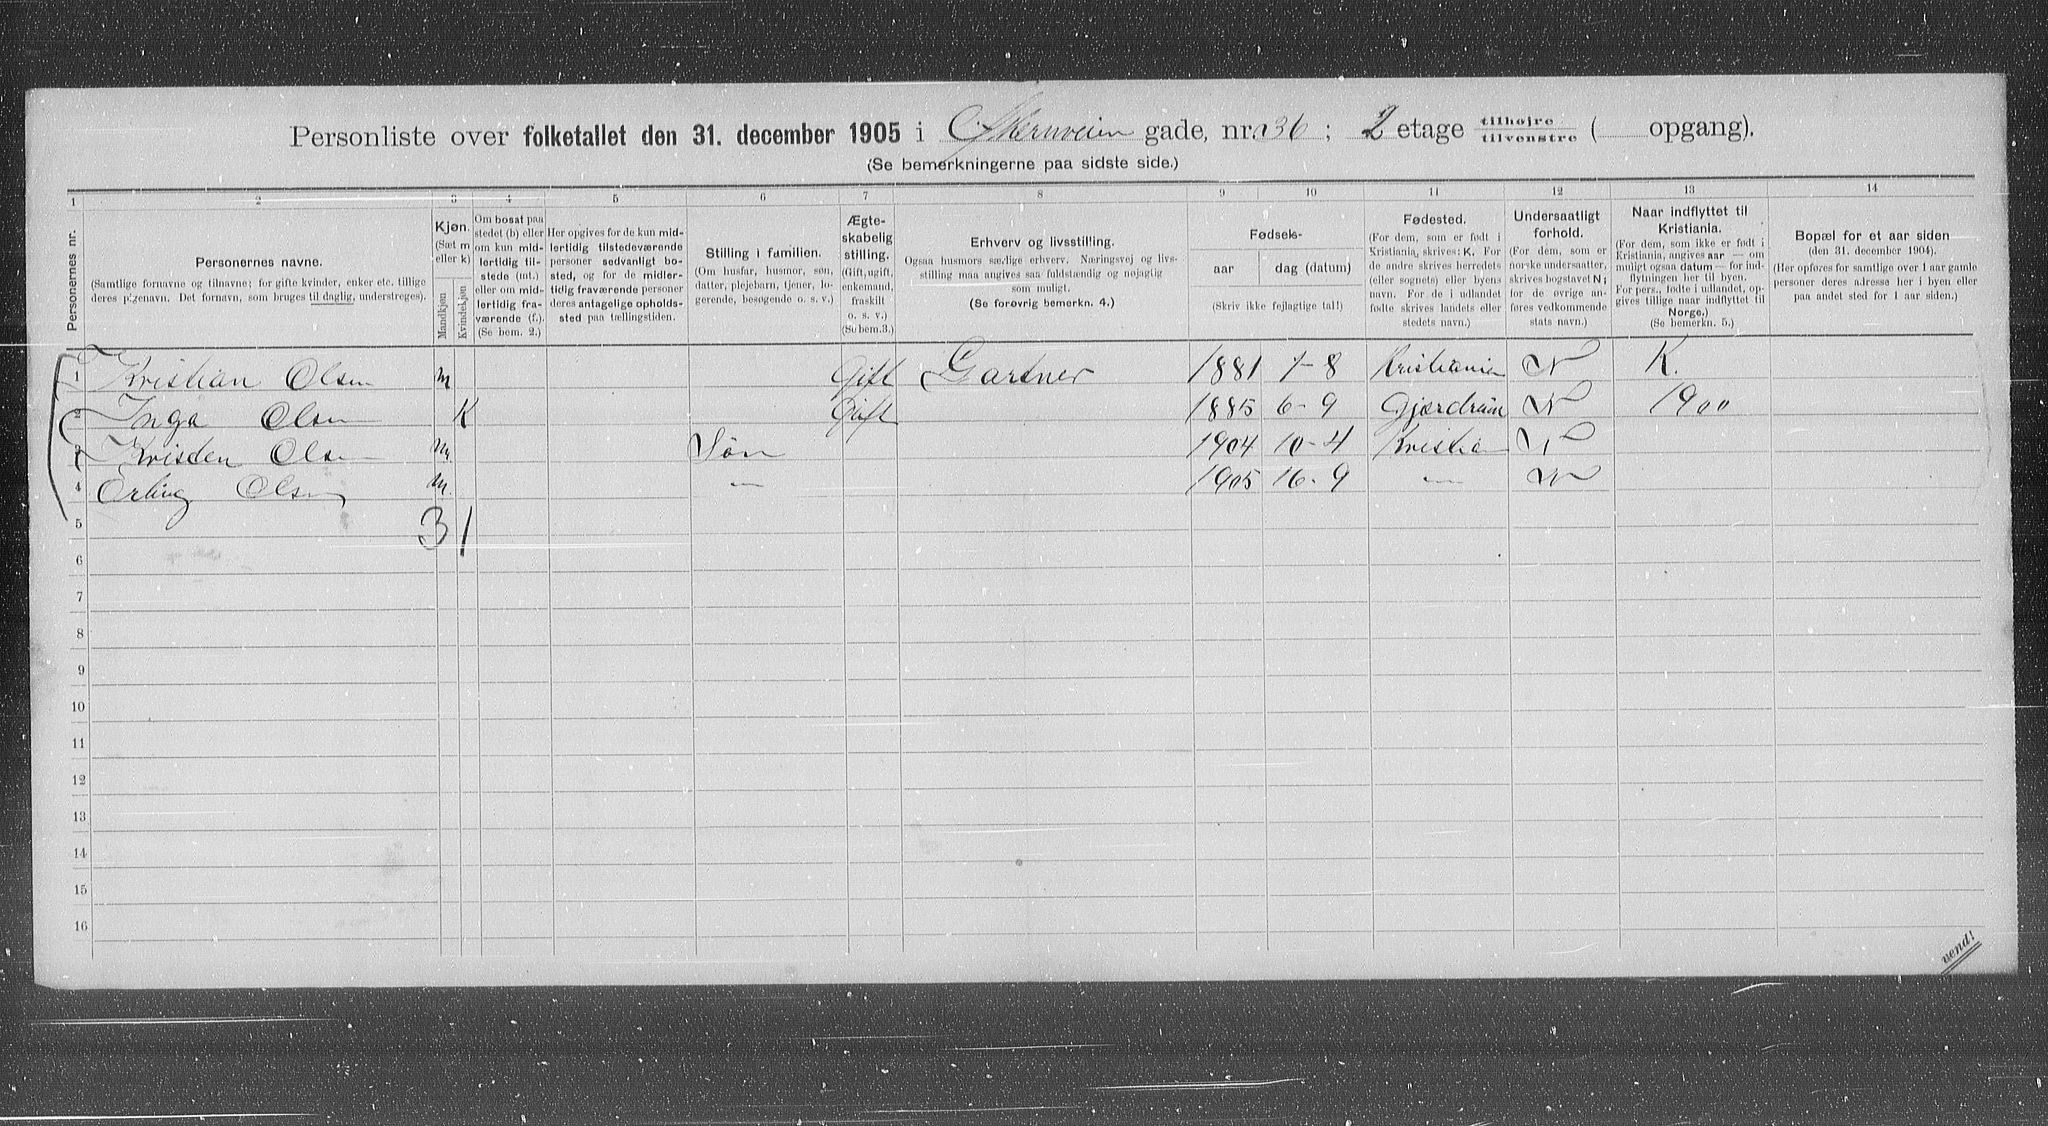 Personliste over folketallet den 31. december 1905 i gade, nr. 36 ; 2 etage tilhøjre tilvenstre ( opgang).
(Se bemerkningerne paa sidste side.)
1 2 3 4 5 6 7 8 9 10 11 12 13 14
Personernes nr.
Personernes navne.
(Samtlige fornavne og tilnavne; for gifte kvinder, enker etc. tillige deres pigenavn. Det fornavn, som bruges til daglig, understreges).
Kjøn.
(Sæt m eller k)
Mandkjøn
Kvindekjøn
Om bosat paa stedet (b) eller om kun midlertidig tilstede (mt.) eller om midlertidig fraværende (f.). (Se bem. 2.)
Her opgives for de kun midlertidig tilstedeværende personer sedvanligt bosted, og for de midlertidig fraværende personer deres antagelige opholdssted paa tællingstiden.
Stilling i familien.
(Om husfar, husmor, søn, datter, plejebarn, tjener, logerende, besøgende o. s. v.)
Ægteskabelig stilling.
(Gift, ugift, enkemand, fraskilt o. s. v.)
(Se bem. 3.)
Erhverv og livsstilling.
Ogsaa husmors særlige erhverv. Næringsvej og livsstilling maa angives saa fuldstændig og nøjagtig som muligt.
(Se forøvrig bemerkn. 4.)
Fødsels-
aar
dag (datum)
(Skriv ikke fejlagtige tal!)
Fødested.
(For dem, som er født i Kristiania, skrives: K. For de andre skrives herredets (eller sognets) eller byens navn. For de i udlandet fødte skrives landets eller stedets navn.)
Undersaatligt forhold.
(For dem, som er norske undersaatter, skrives bogstavet N; for de øvrige anføres vedkommende stats navn.)
Naar indflyttet til Kristiania.
(For dem, som ikke er født i Kristiania, angives aar — om muligt ogsaa datum — for indflytningen her til byen. For pers., fødte i udlandet, opgives tillige naar indflyttet til Norge.)
(Se bemerkn. 5.)
Bopæl for et aar siden
(den 31. december 1904).
(Her opføres for samtlige over 1 aar gamle personer deres adresse her i byen eller paa andet sted for 1 aar siden.)
1 Kristian Olsen m Gift Gartner 1881 1-8 Kristiania N K.
2 Inga Olsen K Gift 1885 6-9 Gjærdrum N 1900
3 Kristen Olsen m. Søn 1904 10-4 Kristian N
4 Erling Olsen m. — 1905 16-9 — N
5 3 1
6
7
8
9
10
11
12
13
14
15
16
vend!